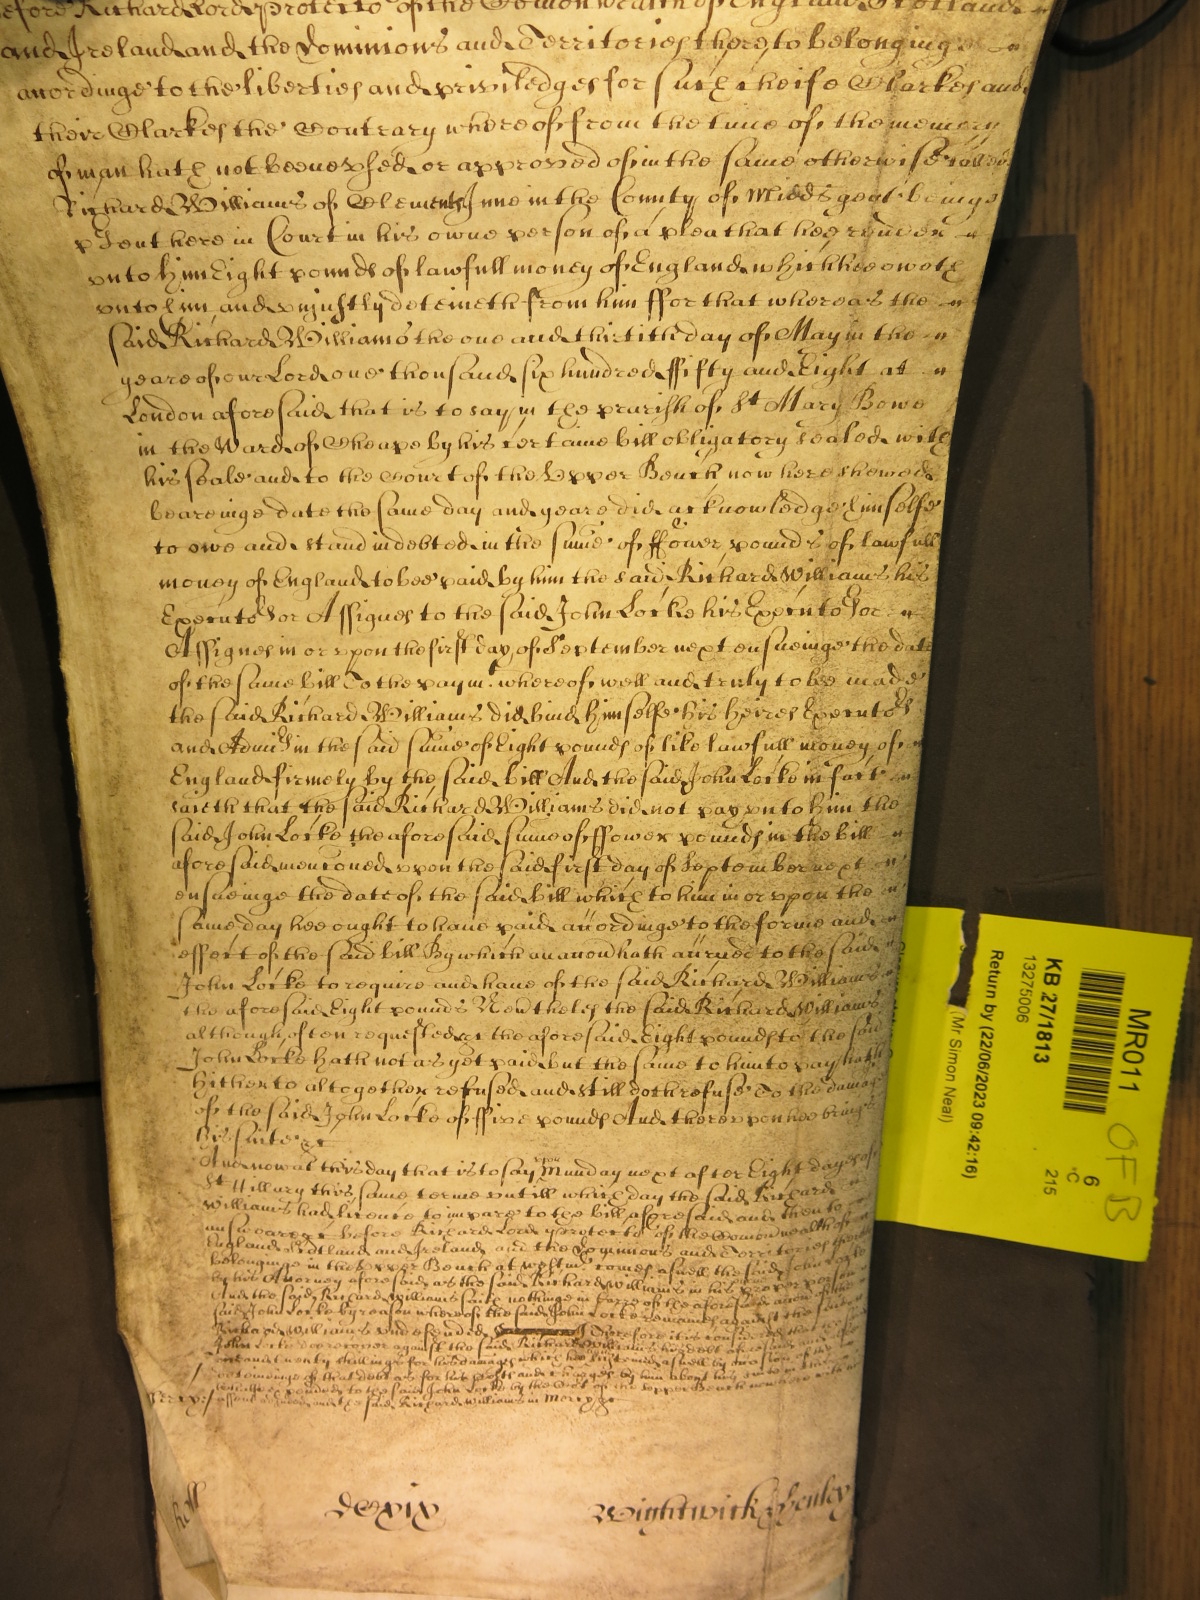 before Richard Lord Protector of the Comonwealth of England Scotland
and Ireland and the Dominions and Territories thereto belonginge
accordinge to the liberties and priviledges for such cheife Clarkes and
their Clarkes the Contrary whereof from the time of the memory
of man hath not beene vsed or approved of in the same otherwise called
Richard Williams of Clements Inne in the County of Midds gent beinge
p'sent here in Court in his owne person of a plea that hee render
vnto him Eight pounds of lawfull money of England which hee oweth
vnto him and vniustly deteineth from him ffor that whereas the
said Richard Williams the one and thirtith day of May in the
yeare of our Lord one thousand six hundred ffifty and Eight at
London aforesaid that is to say in the parish of St Mary Bowe
in the Ward of Cheape by his certaine bill obligatory sealed with
his seale and to the Court of the Vpper Bench now here shewed
beareinge date the same day and yeare did acknowledge himselfe
to owe and stand indebted in the sume of ffower pounds of lawfull
money of England to bee paid by him the said Richard Williams his
Executors or Assignes to the said John Locke his Executors or
Assignes in or vpon the first day of September next ensueinge the date
of the same bill To the paymt whereof well and truly to bee made
the said Richard Williams did bind himselfe his heires Executors
and Admirs in the said sume of Eight pounds of like lawfull money of
England firmely by the said bill And the said John Locke in fact
saieth that the said Richard Williams did not pay vnto him the
said John Locke the aforesaid sume of ffower pounds in the bill
aforesaid mencioned vpon the said first day of September next
ensueinge the date of the said bill which to him in or vpon the
same day hee ought to haue paid accordinge to the forme and
effect of the said bill By which an accion hath accrued to the said
John Locke to require and haue of the said Richard Williams
the aforesaid Eight pounds Neuertheles the said Richard Williams
although often requested &c the aforesaid Eight pounds to the said
John Locke hath not as yet paid but the same to him to pay hath
hitherto altogether refused and still doth refuse To the damage
of the said John Locke of ffive pounds And therevpon hee brings
his suite &c
And now at this day that is to say vpon Munday next after Eight dayes of
St Hillary this same terme vntill which day the said Richard
Williams had licence to imparle to the bill aforesaid and then to
answeare &c before Richard Lord Protector of the Comonwealth of
England Scotland and Ireland and the Dominions and Territories thereto
belonginge in the Vpper Bench at Westmr comes aswell the said John Locke
by his Attorney aforesaid as the said Richard Williams in his proper person
And the said Richard Williams saith nothinge in barre of the aforesaid accion of the
said John Locke by reason whereof the said John Locke remaines against the said
Richard Williams vndefended Therefore it is considered that the said
John Locke recover against the said Richard Williams his debt aforesaid and
and twenty shillings for his damages which hee susteined aswell by occasion of the
deteininge of that debt as for his costs and charges by him about his suite in this
to the said John Locke by the Court of the Vpper Bench now here with his
assent adiudged and the said Richard Williams in Mercy &c
Mercy
Roll
dcxix
Wightwick & Henley
MR011
KB 27/1813
13275006
Return by (22/06/2023 09:42:16)
(Mr Simon Neal)
6
°C
215
OFB